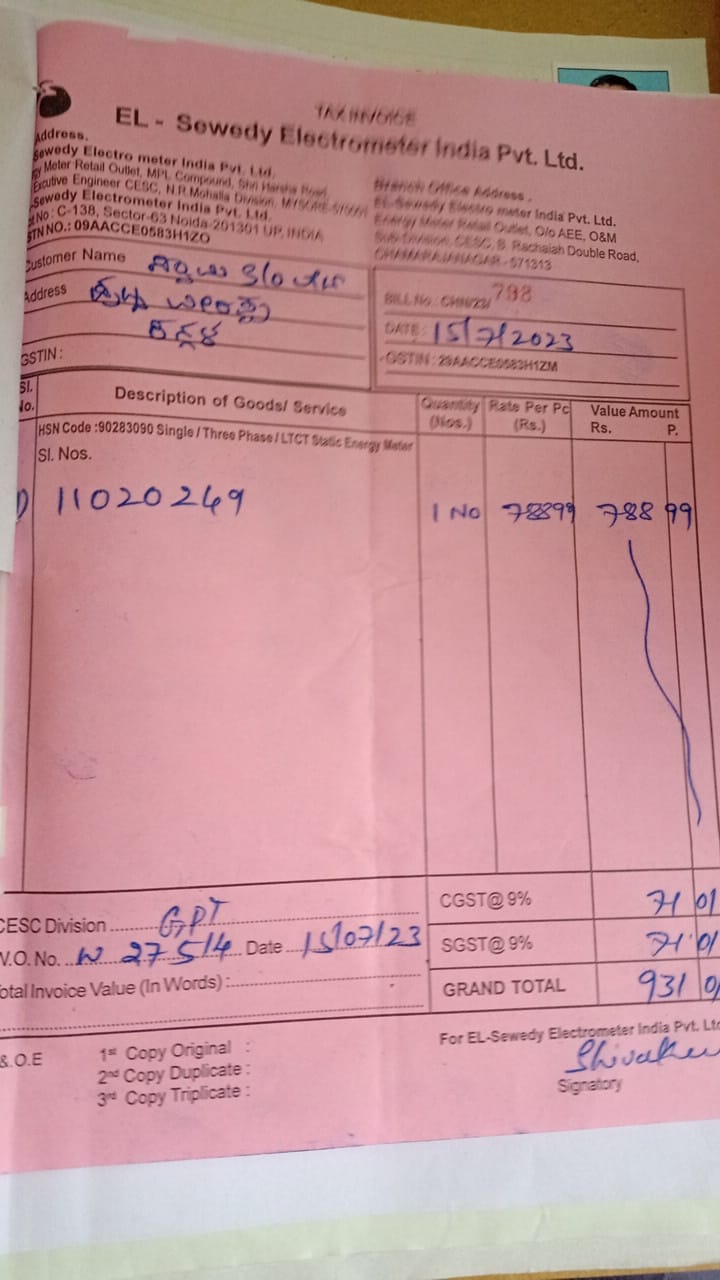 TAX INVOICE
EL - Sewedy Electrometer India Pvt. Ltd.
Address.
Sewedy Electro meter India Pvt. Ltd.
Meter Retail Outlet, MPL Compound, Shri Harsha Road,
Excutive Engineer CESC, N.R. Mohalla Division, MYSORE-
Sewedy Electrometer India Pvt. Ltd.
No : C-138, Sector-63 Noida-201301 UP, INDIA
STN NO.: 09AACCE0583H1ZO
Branch Office Address.
EL-Sewedy Electro meter India Pvt. Ltd.
Energy Meter Retail Outlet, O/o AEE, O&M
Sub-Division, CESC, B. Rachaiah Double Road,
CHAMARAJANAGAR - 571313
Customer Name
Address
GSTIN :
BILL No.: CHN/23/ 798
DATE : 15/7/2023
GSTIN : 29AACCE0583H1ZM
Sl. No. Description of Goods/ Service Quantity (Nos.) Rate Per Pc (Rs.) Value Amount Rs. P.
HSN Code :90283090 Single / Three Phase / LTCT Static Energy Meter
Sl. Nos.
1) 11020249 1 No 78899 788 99
CGST@ 9% 71 01
CESC Division GPT
SGST@ 9% 71 01
W.O. No. W 27514 Date 15/07/23
GRAND TOTAL 931 0
Total Invoice Value (In Words) :
&.O.E
1st Copy Original :
2nd Copy Duplicate :
3rd Copy Triplicate :
For EL-Sewedy Electrometer India Pvt. Ltd
Signatory